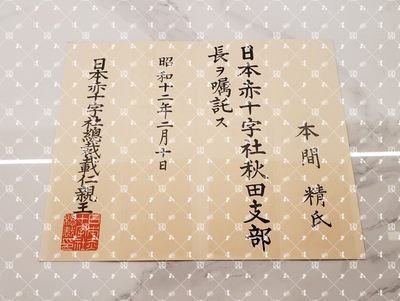 本間 精氏
日本赤十字社秋田支部
長ヲ嘱託ス
昭和十二年二月十日
日本赤十字社總裁載仁親王